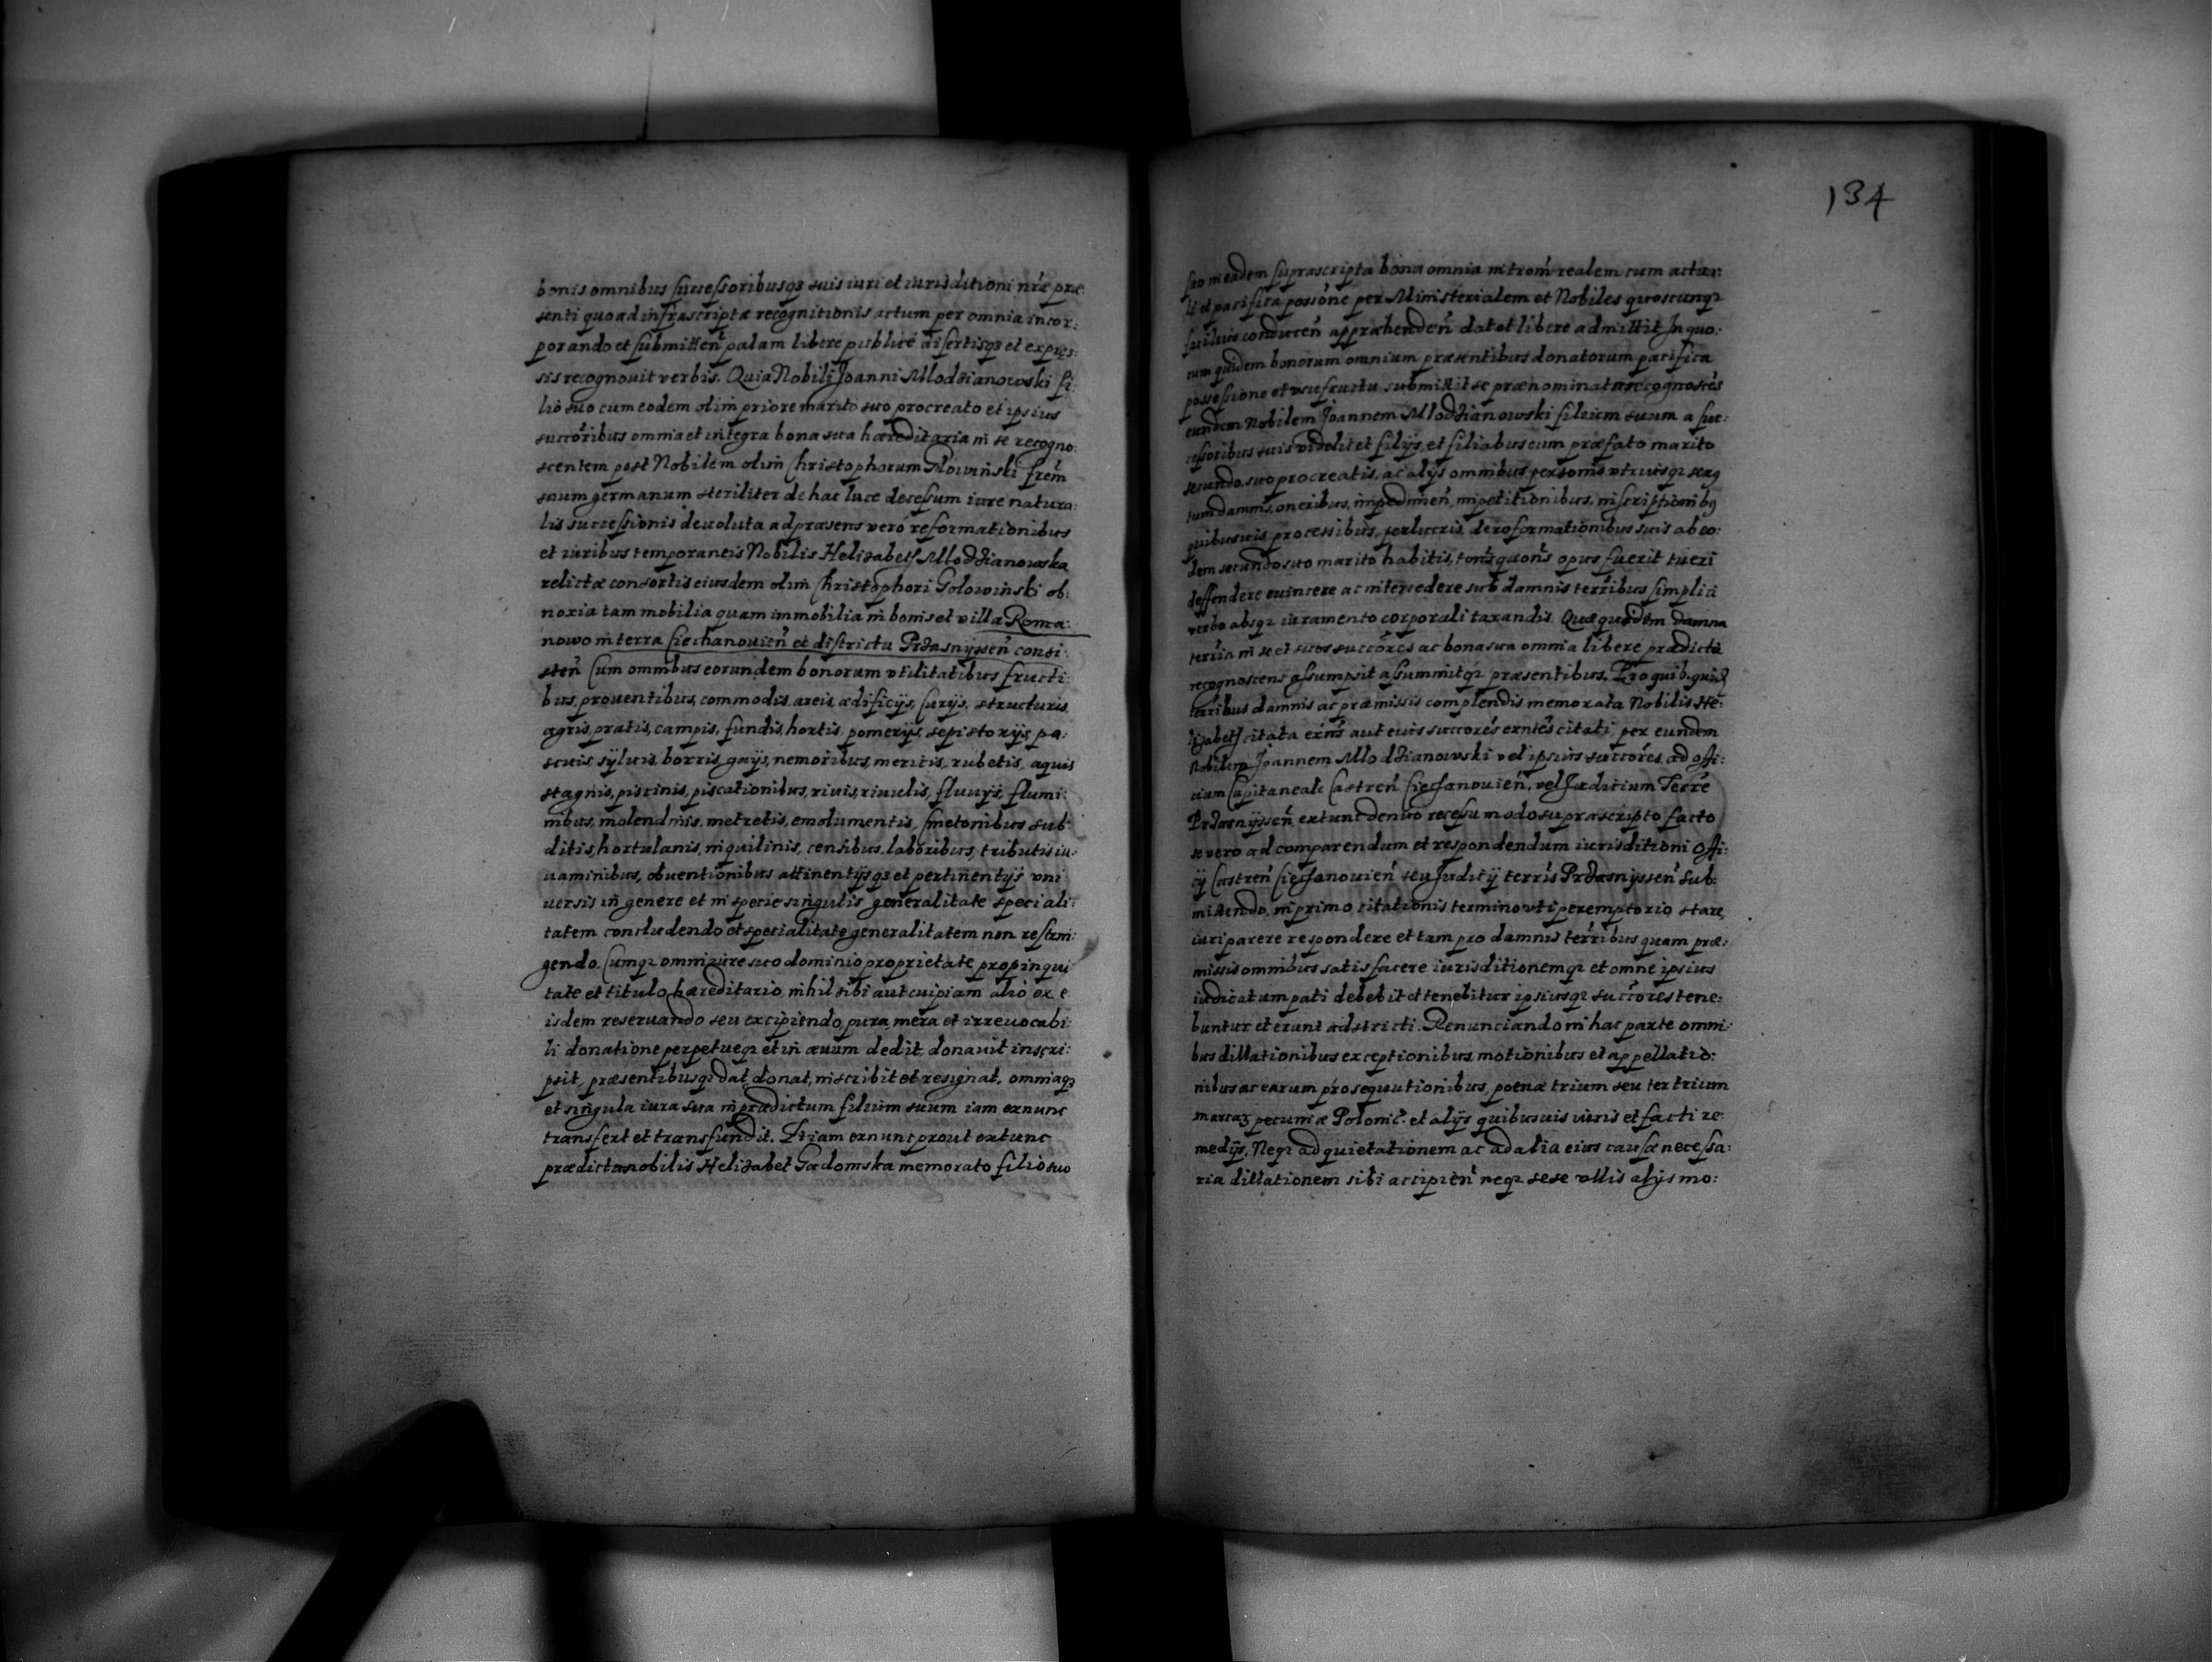 bonis omnibus successoribusq3 suis iuri et iurisditioni nrae prae
senti quoad infrascriptae recognitionis actum per omnia incor:
porando et submitten palam libere publice disertisq3 et expres:
sis recognouit verbis. Quia Nobili Joanni Mlodzianowski fi:
lio suo cum eodem olim priore marito suo procreato et ipsius
succoribus omnia et integra bona sua haereditaria in se recogno:
scentem post Nobilem olim Christophorum Golowinski frem
suum germanum steriliter de hac luce decessum iure natura:
lis successionis deuoluta ad praesens vero reformationibus
et iuribus temporaneis Nobilis Helizabeth Mlodzianowska
relictae consortis eiusdem olim Christophori Golowinski ob:
noxia tam mobilia quam immobilia in bonis et villa Roma:
nowo in terra Ciechanouien et districtu Przasnyssen consi:
sten Cum omnibus eorundem bonorum vtilitatibus fructi:
bus, prouentibus, commodis, areis, aedificijs, curijs, structuris,
agris, pratis, campis, fundis, hortis, pomerijs, sepistorijs, pa:
scuis, syluis, borris, gaijs, nemoribus, mericis, rubetis, aquis
stagnis, piscinis, piscationibus, riuis, riuulis, fluuijs, flumi:
nibus, molendinis, metretis, emolumentis, Cmetonibus sub:
ditis, hortulanis, inquilinis, censibus, laboribus, tributis iu:
uaminibus, obuentionibus attinentijsq3 et pertinentijs vni
uersis in genere et in specie singulis generalitate speciali:
tatem concludendo et specialitate generalitatem non restrin:
gendo. Cumq3 omni iure suo dominio proprietate propinqui
tate et titulo haereditario, nihil sibi aut cuipiam alio ex e
isdem reseruando seu excipiendo, pura, mera et irreuocabi:
li donatione perpetueq3 et in aeuum dedit, donauit inscri:
psit, praesentibusq3 dat, donat, inscribit et resignat, omniaq3
et singula iura sua in praedictum filium suum iam exnunc
transfert et transfundit. Etiam exnunc prout extunc
praedicta nobilis Helizabet Gadomska memorato filio suo
134
suo in eadem suprascripta bona omnia introm realem cum actua:
li et pacifica possone per Ministerialem et Nobiles quoscunq3
conducen apprahenden dat et libere admittit. In quo:
rum quidem bonorum omnium praesentibus donatorum pacifica
possessione et vsufructu submittit se praenominata recognoscens
eundem Nobilem Joannem Mlodzianowski filium suum a suc:
cessoribus suis videlicet filijs, et filiabus cum praefato marito
secundo suo procreatis, ac alijs omnibus personis vtriusq3 sexus
tum damnis, oneribus, impedimen, impetitionibus, inscriptionibus
quibusuis processibus, perlucris, de reformationibus suis ab eo:
dem secundo suo marito habitis, quons opus fuerit tueri
deffendere euincere ac intercedere sub damnis terribus simplici
verbo absq3 iuramento corporali taxandis. Quae quidem damna
terria in se et suos succores ac bona sua omnia libere praedicta
recognoscens assumpsit assummitq3 praesentibus. Pro quib. quid
terribus damnis ac praemissis complendis memorata Nobilis He:
lizabeth citata exns aut eius succores exntes citati, per eundem
Nobilem Joannem Mlodzianowski vel ipsius succores, ad offi:
cium Capitaneale Castren Ciechanouien, vel Juditium Terre
Przasnyssen, extunc denuo recessu modo suprascripto facto
se vero ad comparendum et respondendum iurisditioni offi:
cij Castren Ciechanouien seu Juditij terris Przasnyssen Sub:
mittendo, in primo citationis termino vti peremptorio stare,
iuri parere respondere et tam pro damnis terribus quam prae:
missis omnibus satisfacere iurisditionemq3 et omne ipsius
iudicatum pati debebit et tenebitur ipsiusq3 succores tene:
buntur et erunt adstricti. Renunciando in hac parte omni:
bus dillationibus exceptionibus motionibus et appellatio:
nibus ac earum prosequutionibus, poenae trium seu ter trium
marcar pecuniae Polonic. et alijs quibusuis iuris et facti re:
medijs, Neq3 ad quietationem ac ad alia eius causae necessa:
ria dillationem sibi accipien neq3 sese vllis alijs mo: